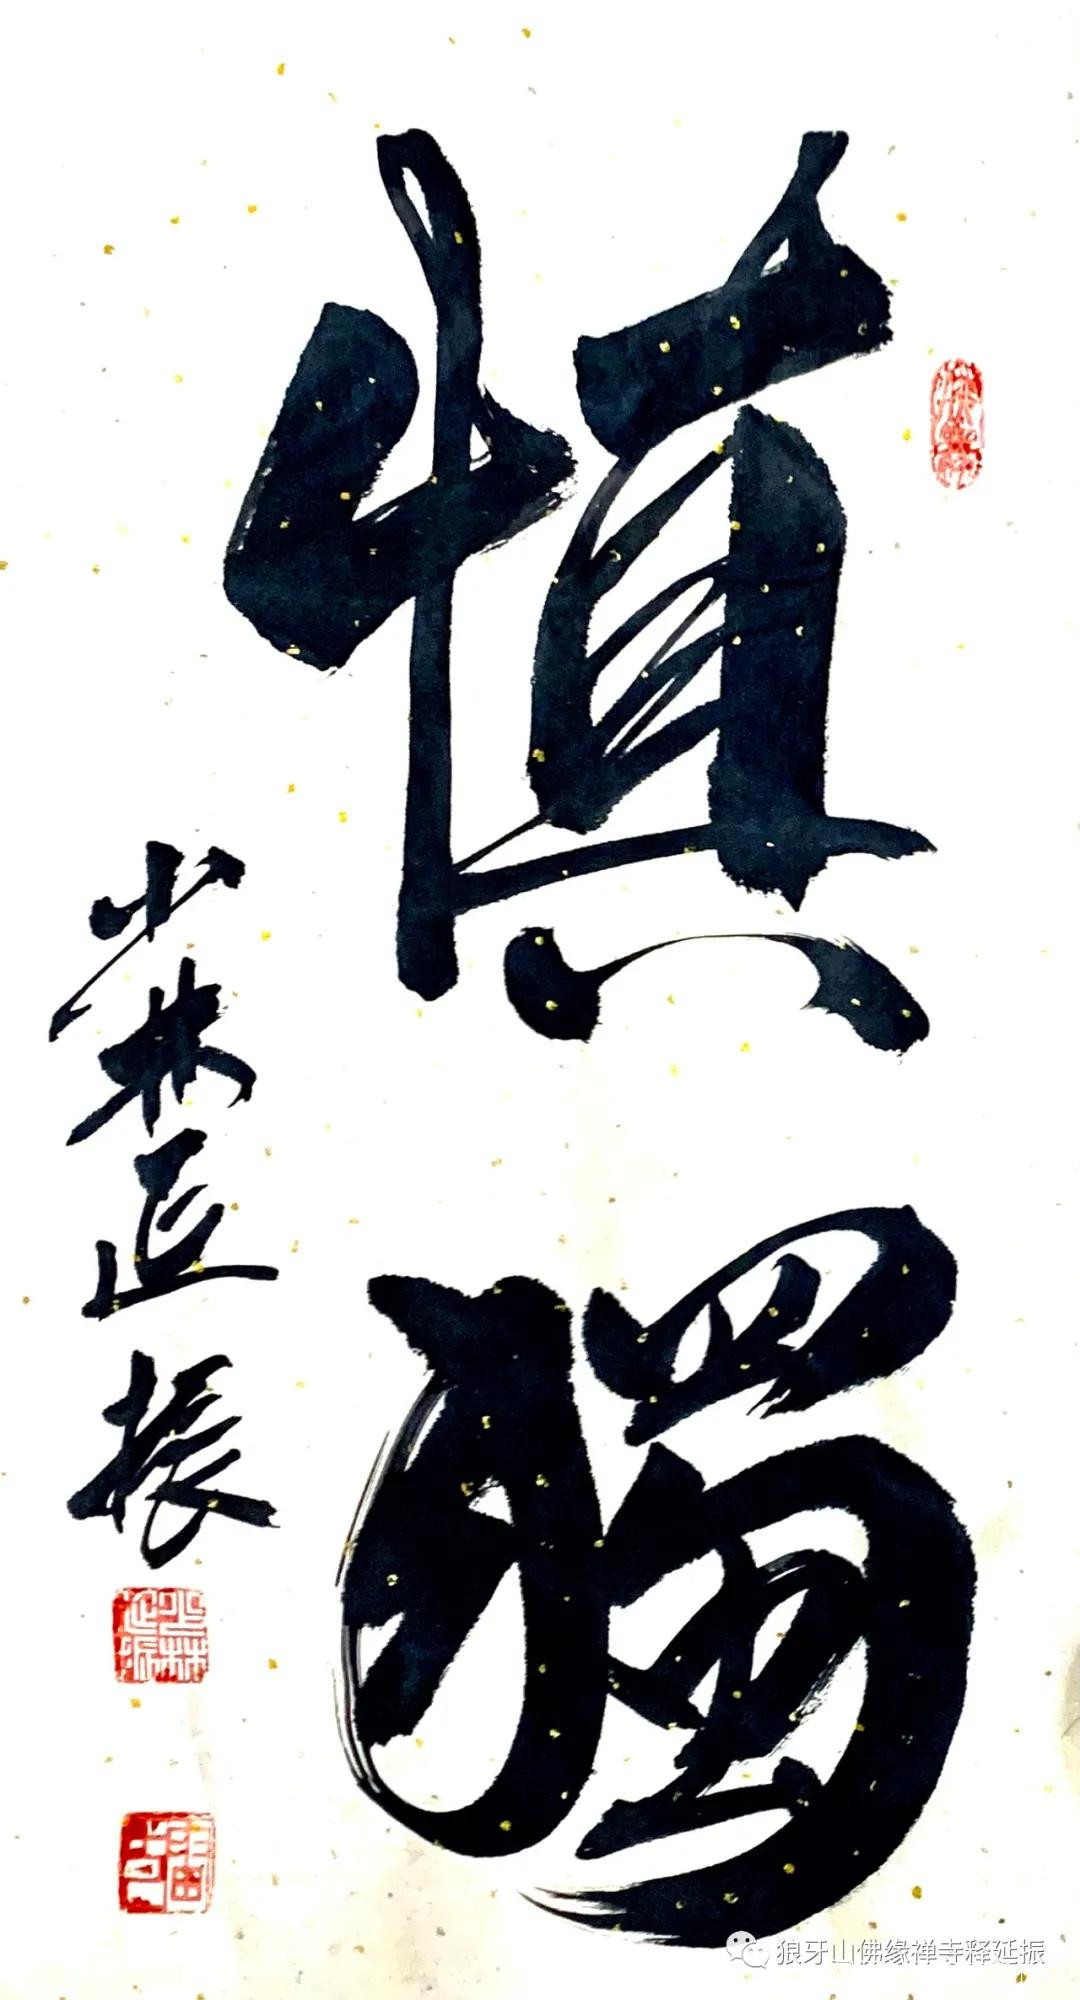 慎獨
少林延振
少林延振
狼牙山佛缘禅寺释延振